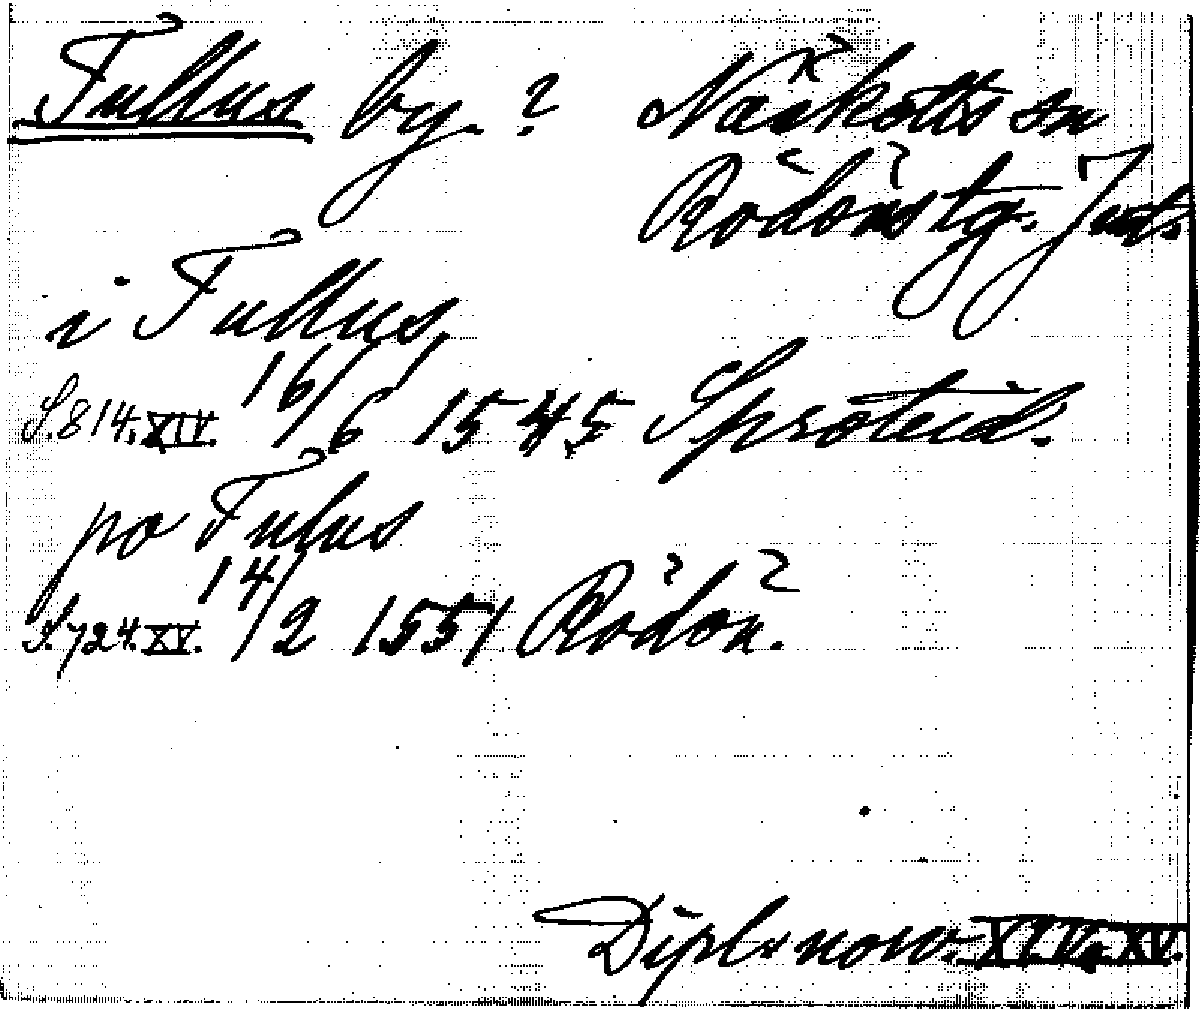 Tullus by. ? Näskotts sn
Rödöns tg. Jmt.
i Tullus
S. 814. XIV. 16/6 1545 Sproteid.
po Tulus
S. 724. XV. 14/2 1551 Rödön.
Dipl. norv. XIV, XV.